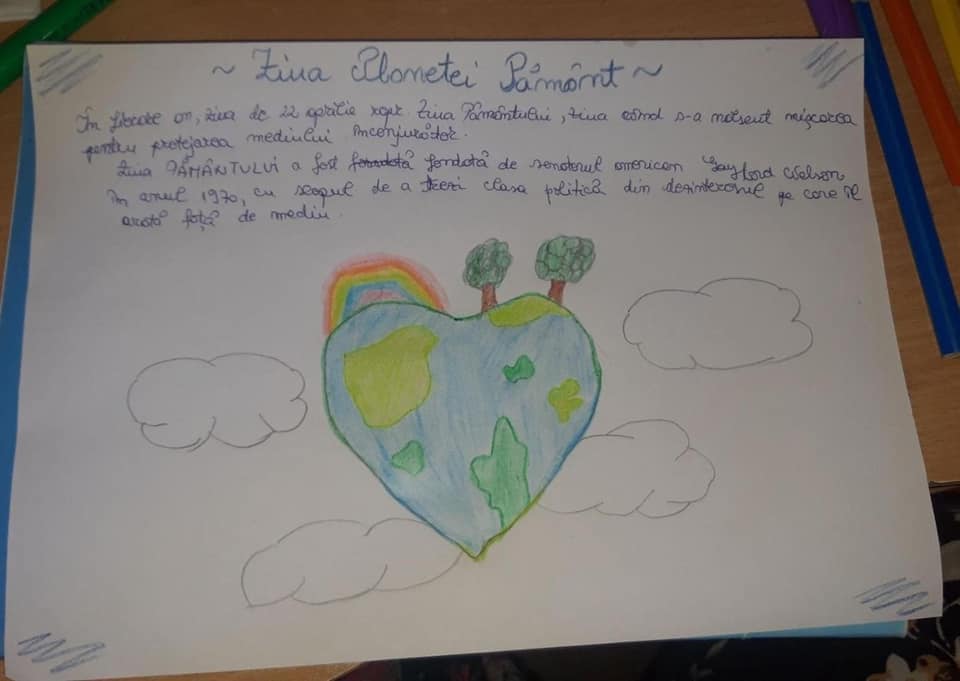 ~ Ziua Planetei Pământ ~
În fiecare an, ziua de 22 aprilie repr. Ziua Pământului, ziua când s-a născut mișcarea
pentru protejarea mediului înconjurător.
Ziua PĂMÂNTULUI a fost fondată de senatorul american Gaylord Nelson
în anul 1970, cu scopul de a trezi clasa politică din dezinteresul pe care îl
arată față de mediu.